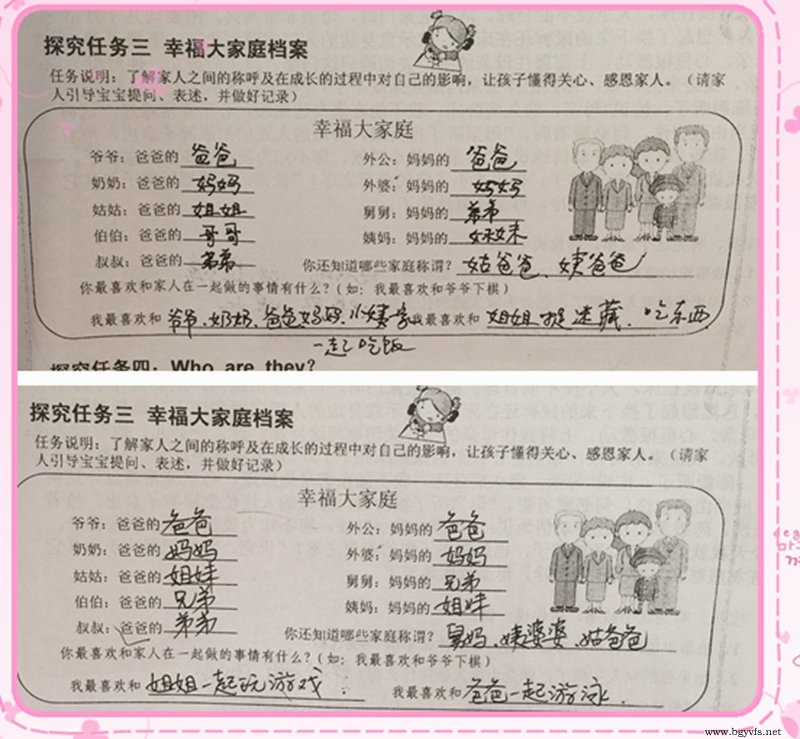 探究任务三 幸福大家庭档案
任务说明：了解家人之间的称呼及在成长的过程中对自己的影响，让孩子懂得关心、感恩家人。（请家
人引导宝宝提问、表述，并做好记录）
幸福大家庭
爷爷：爸爸的 爸爸 外公：妈妈的 爸爸
奶奶：爸爸的 妈妈 外婆：妈妈的 妈妈
姑姑：爸爸的 姐姐 舅舅：妈妈的 弟弟
伯伯：爸爸的 哥哥 姨妈：妈妈的 妹妹
叔叔：爸爸的 弟弟 你还知道哪些家庭称谓？姑爸爸、姨爸爸
你最喜欢和家人在一起做的事情有什么？（如：我最喜欢和爷爷下棋）
我最喜欢和 爷爷、奶奶、爸爸妈妈、小姨 我最喜欢和 姐姐捉迷藏、吃东西
一起吃饭
探究任务四：Who are they?
探究任务三 幸福大家庭档案
任务说明：了解家人之间的称呼及在成长的过程中对自己的影响，让孩子懂得关心、感恩家人。（请家
人引导宝宝提问、表述，并做好记录）
幸福大家庭
爷爷：爸爸的 爸爸 外公：妈妈的 爸爸
奶奶：爸爸的 妈妈 外婆：妈妈的 妈妈
姑姑：爸爸的 姐妹 舅舅：妈妈的 兄弟
伯伯：爸爸的 兄弟 姨妈：妈妈的 姐妹
叔叔：爸爸的 弟弟 你还知道哪些家庭称谓？舅妈、姨婆婆、姑爸爸
你最喜欢和家人在一起做的事情有什么？（如：我最喜欢和爷爷下棋）
我最喜欢和 姐姐一起玩游戏. 我最喜欢和 爸爸一起游泳.
www.bgyvfs.net